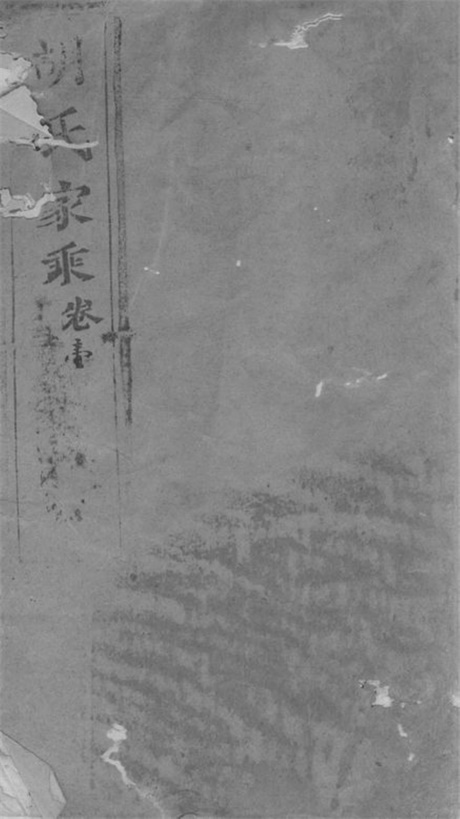 胡氏家乘
卷壹